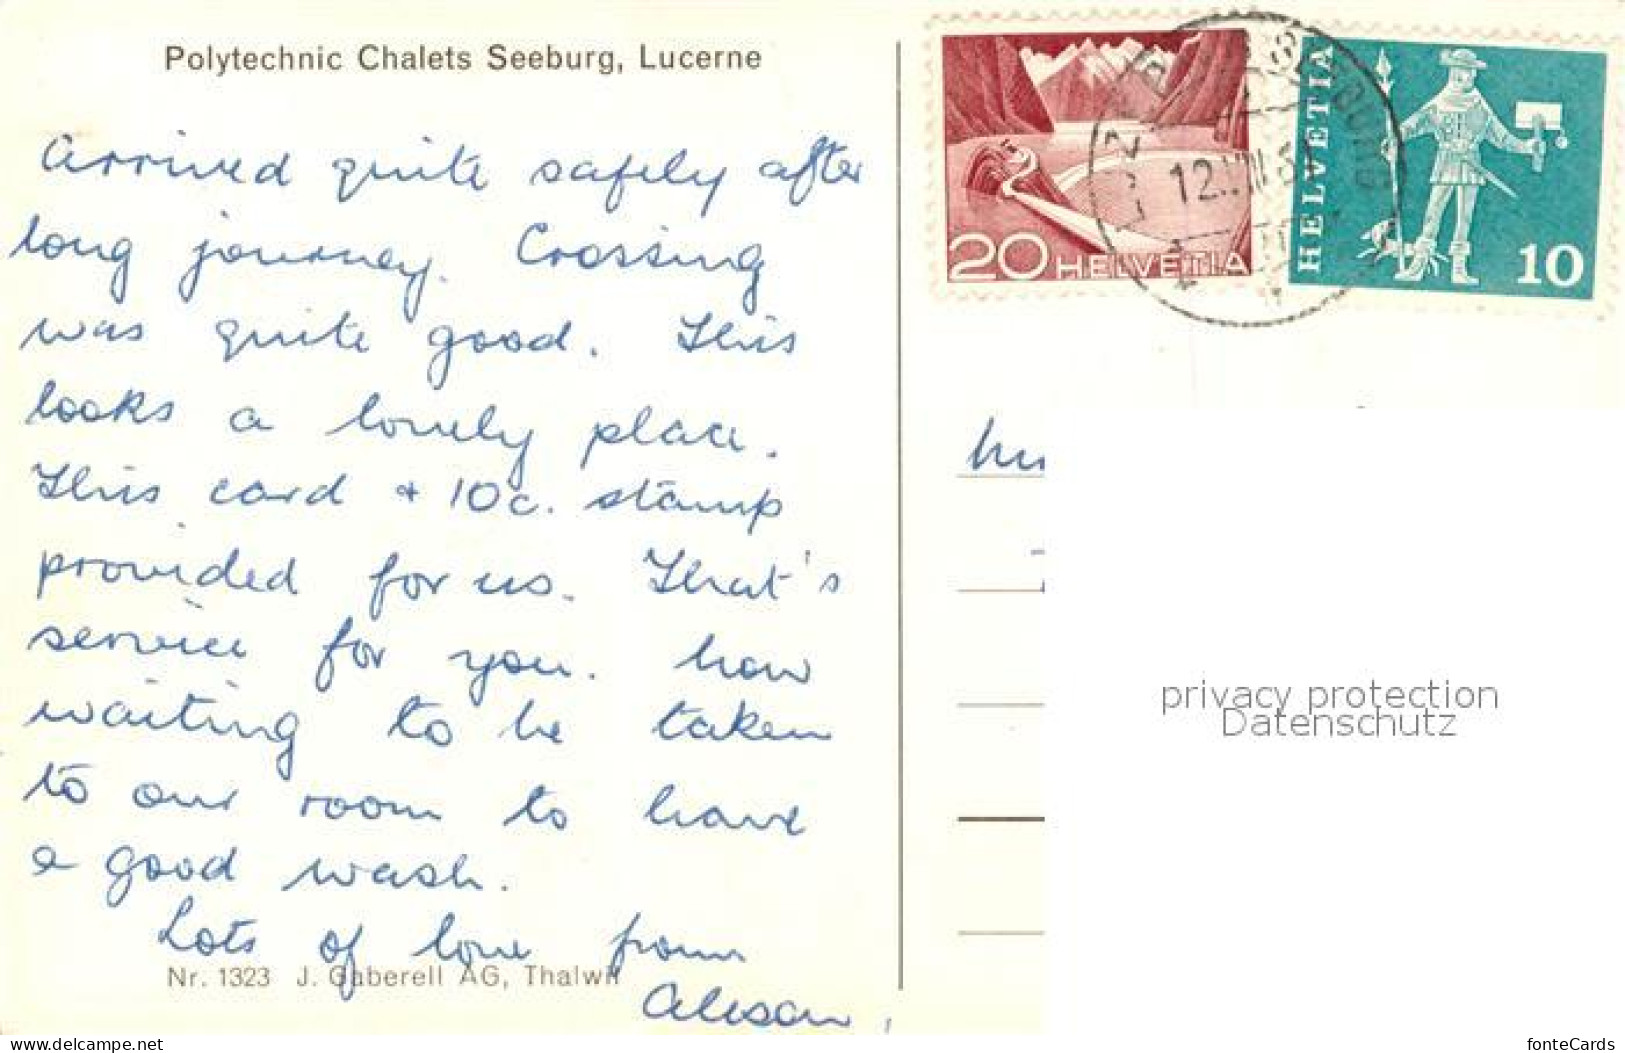 Polytechnic Chalets Seeburg, Lucerne
Arrived quite safely after
long journey. Crossing
was quite good. This
looks a lovely place.
This card + 10c. stamp
provided for us. That's
service for you. Now
waiting to be taken
to our room to have
a good wash.
Lots of love from
Alison.
Nr. 1323 J. Gaberell AG, Thalwil
20 HELVETIA
HELVETIA
10
12.VIII
privacy protection
Datenschutz
www.delcampe.net
fonteCards